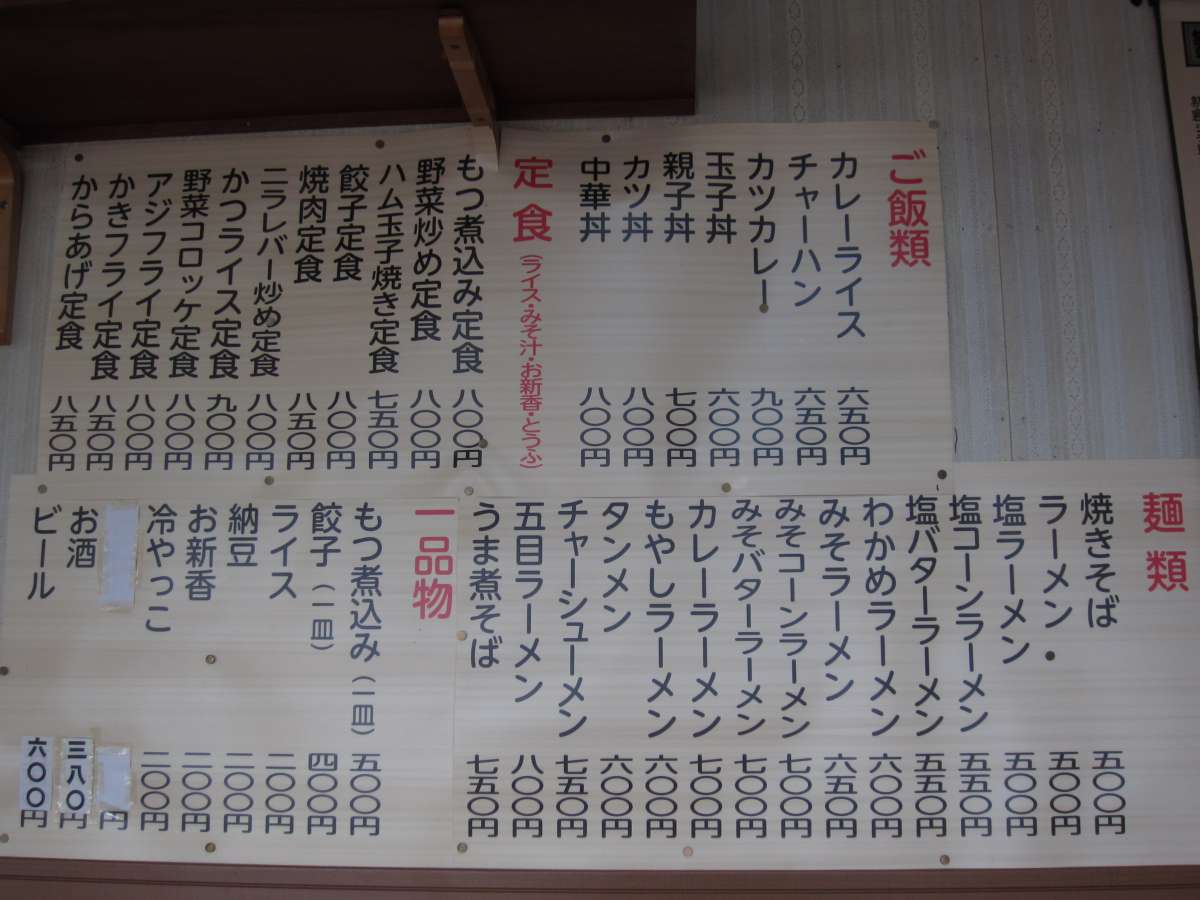 ご飯類
カレーライス 六五〇円
チャーハン 六五〇円
カツカレー 九〇〇円
玉子丼 六〇〇円
親子丼 七〇〇円
カツ丼 八〇〇円
中華丼 八〇〇円
定食(ライス・みそ汁・お新香・とうふ)
もつ煮込み定食 八〇〇円
野菜炒め定食 八〇〇円
ハム玉子焼き定食 七五〇円
餃子定食 八〇〇円
焼肉定食 八五〇円
ニラレバー炒め定食 八〇〇円
かつライス定食 九〇〇円
野菜コロッケ定食 八〇〇円
アジフライ定食 八〇〇円
かきフライ定食 八五〇円
からあげ定食 八五〇円
麺類
焼きそば 五〇〇円
ラーメン 五〇〇円
塩ラーメン 五〇〇円
塩コーンラーメン 五五〇円
塩バターラーメン 五五〇円
わかめラーメン 六〇〇円
みそラーメン 六五〇円
みそコーンラーメン 七〇〇円
みそバターラーメン 七〇〇円
カレーラーメン 七〇〇円
もやしラーメン 六〇〇円
タンメン 六〇〇円
チャーシューメン 七五〇円
五目ラーメン 八〇〇円
うま煮そば 七五〇円
一品物
もつ煮込み(一皿) 五〇〇円
餃子(一皿) 四〇〇円
ライス 二〇〇円
納豆 二〇〇円
お新香 二〇〇円
冷やっこ 二〇〇円
円
お酒 三八〇円
ビール 六〇〇円